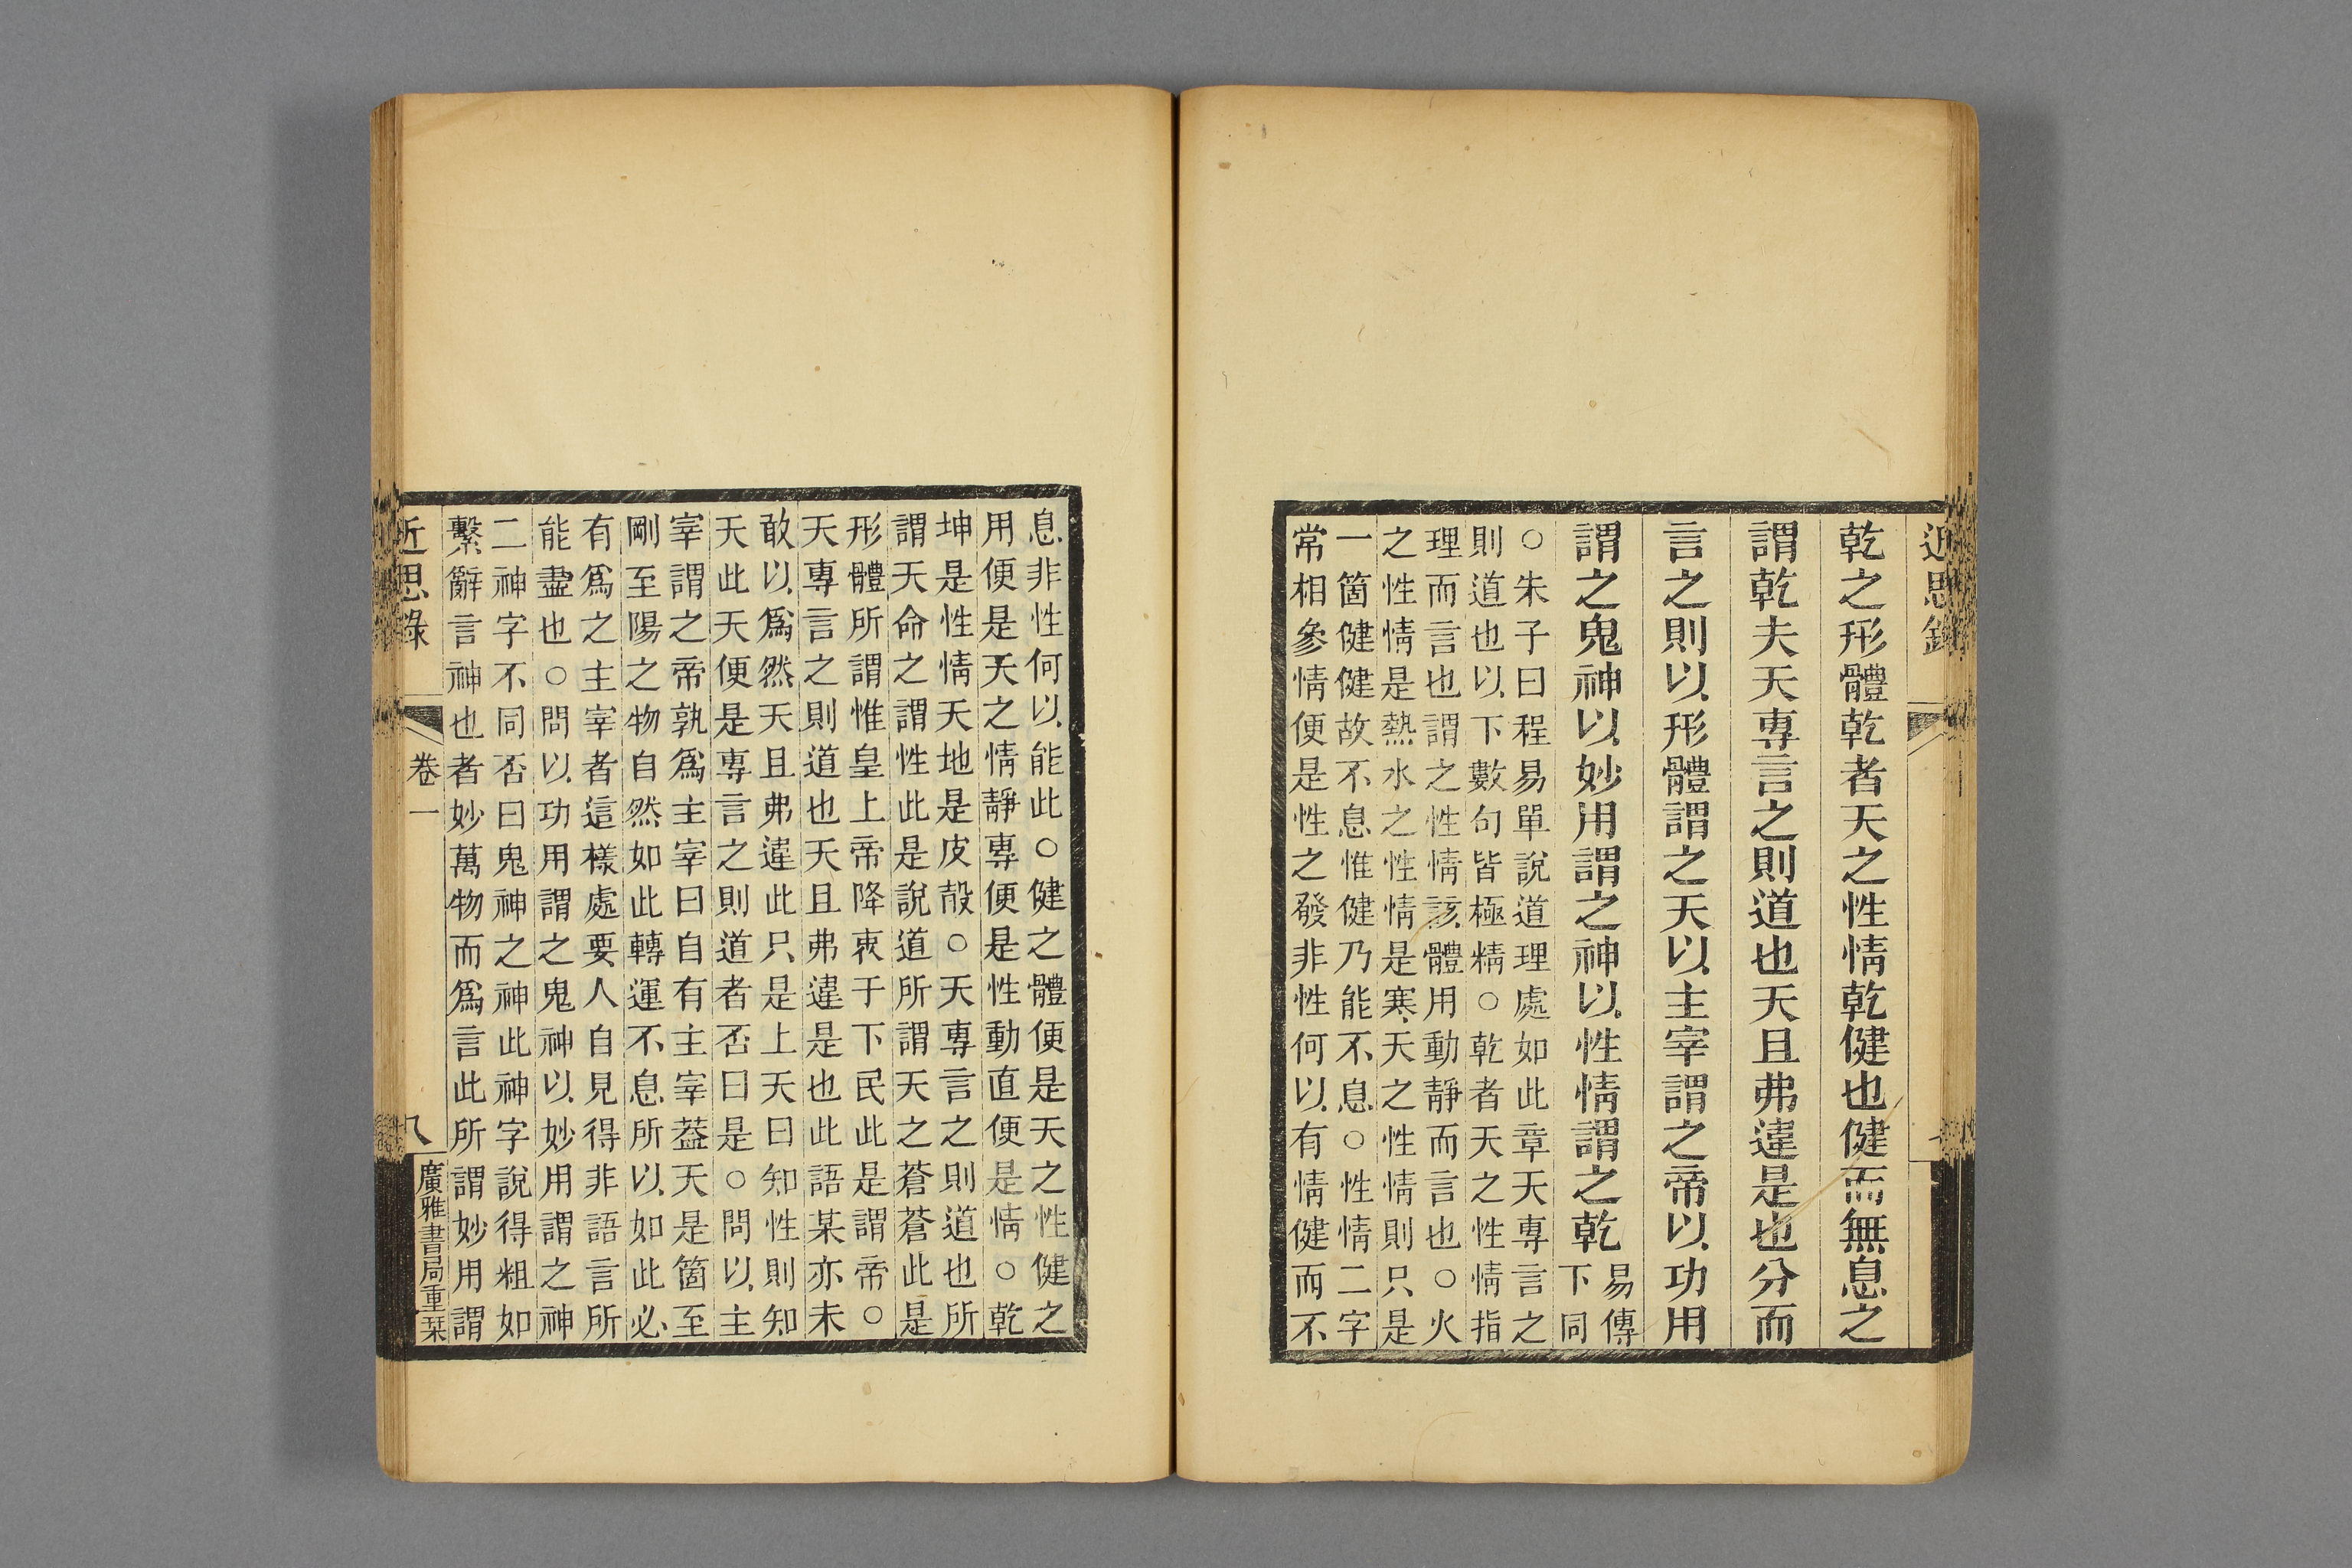 近思錄
乾之形體乾者天之性情乾健也健而無息之
謂乾夫天專言之則道也天且弗違是也分而
言之則以形體謂之天以主宰謂之帝以功用
謂之鬼神以妙用謂之神以性情謂之乾
易傳
下同
○朱子曰程易單說道理處如此章天專言之
則道也以下數句皆極精○乾者天之性情指
理而言也謂之性情該體用動靜而言也○火
之性情是熱水之性情是寒天之性情則只是
一箇健健故不息惟健乃能不息○性情二字
常相參情便是性之發非性何以有情健而不
息非性何以能此○健之體便是天之性健之
用便是天之情靜專便是性動直便是情○乾
坤是性情天地是皮殼○天專言之則道也所
謂天命之謂性此是說道所謂天之蒼蒼此是
形體所謂惟皇上帝降衷于下民此是謂帝○
天專言之則道也天且弗違是也此語某亦未
敢以爲然天且弗違此只是上天曰知性則知
天此天便是專言之則道者否曰是○問以主
宰謂之帝孰爲主宰曰自有主宰葢天是箇至
剛至陽之物自然如此轉運不息所以如此必
有爲之主宰者這樣處要人自見得非語言所
能盡也○問以功用謂之鬼神以妙用謂之神
二神字不同否曰鬼神之神此神字說得粗如
繫辭言神也者妙萬物而爲言此所謂妙用謂
近思錄
卷一
八
廣雅書局重栞